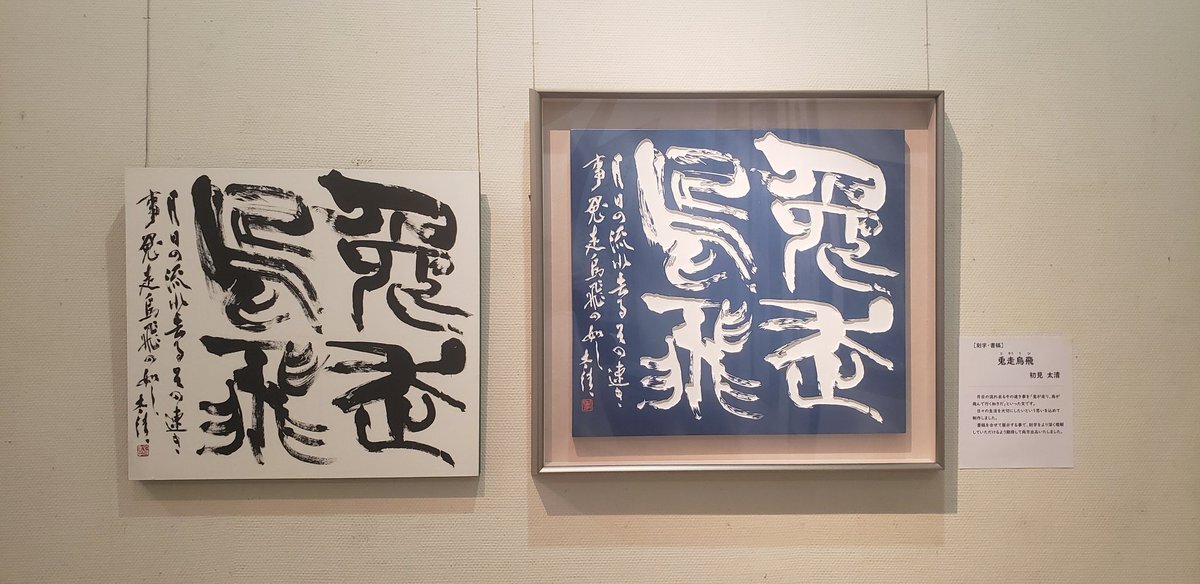 兎走
烏飛
月日の流れ去るその速き
事兎走烏飛の如し 太清
兎走
烏飛
月日の流れ去るその速き
事兎走烏飛の如し 太清
【刻字・書稿】
と そう う ひ
兎走烏飛
初見 太清
月日の流れ去るその速き事を「兎が走り、烏が
飛んで行く如きだ」といった文です。
日々の生活を大切にしたいという思いを込めて
制作しました。
書稿を合せて展示する事で、刻字をより深く理解
していただけるよう期待して両方出品いたしました。